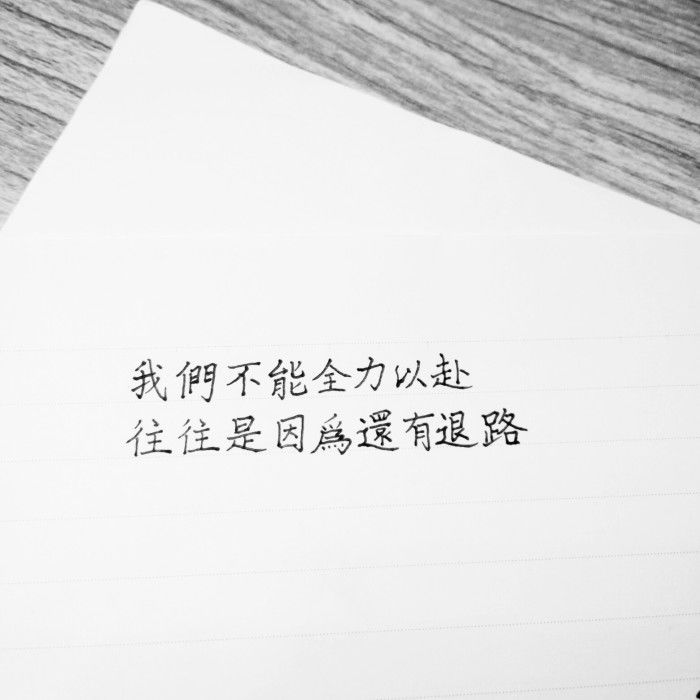 我們不能全力以赴
往往是因爲還有退路